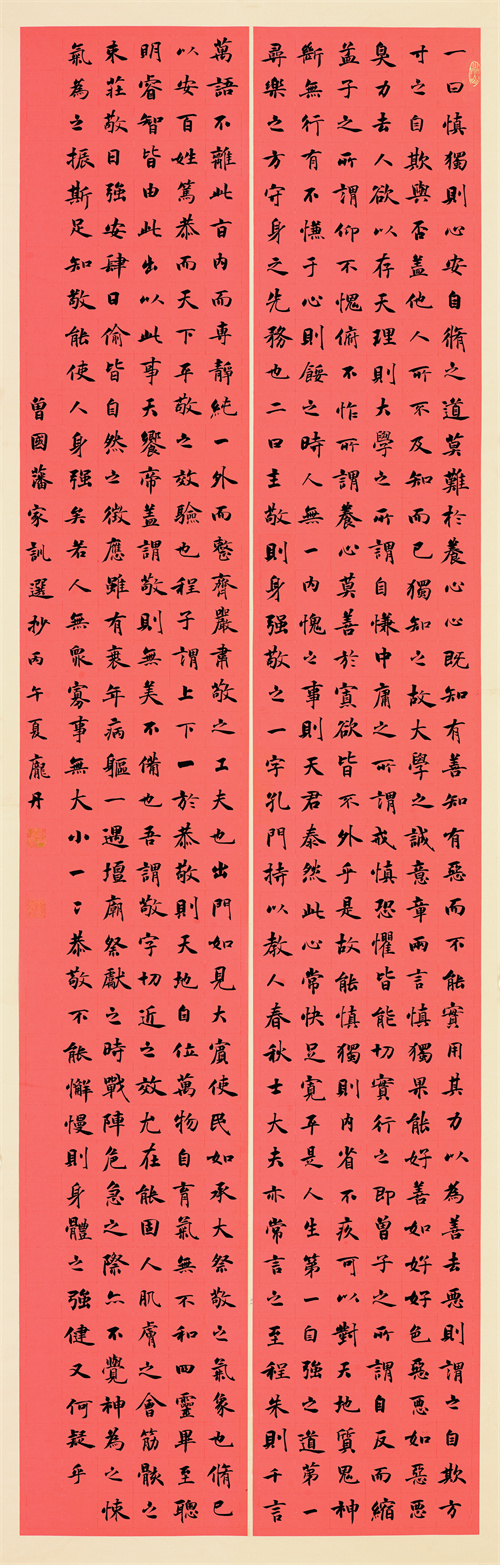 一曰慎獨則心安自脩之道莫難於養心心既知有善知有惡而不能實用其力以為善去惡則謂之自欺方
寸之自欺與否蓋他人所不及知而己獨知之故大學之誠意章兩言慎獨果能好善如好好色惡惡如惡惡
臭力去人欲以存天理則大學之所謂自慊中庸之所謂戒慎恐懼皆能切實行之即曾子之所謂自反而縮
孟子之所謂仰不愧俯不怍所謂養心莫善於寡欲皆不外乎是故能慎獨則內省不疚可以對天地質鬼神
斷無行有不慊于心則餒之時人無一內愧之事則天君泰然此心常快足寬平是人生第一自强之道第一
尋樂之方守身之先務也二曰主敬則身强敬之一字孔門持以教人春秋士大夫亦常言之至程朱則千言
萬語不離此旨內而專靜純一外而整齊嚴肅敬之工夫也出門如見大賓使民如承大祭敬之氣象也脩己
以安百姓篤恭而天下平敬之效驗也程子謂上下一於恭敬則天地自位萬物自育氣無不和四靈畢至聰
明睿智皆由此出以此事天饗帝蓋謂敬則無美不備也吾謂敬字切近之效尤在能固人肌膚之會筋骸之
束莊敬日强安肆日偷皆自然之徵應雖有衰年病軀一遇壇廟祭獻之時戰陣危急之際亦不覺神為之悚
氣為之振斯足知敬能使人身强矣若人無眾寡事無大小一〻恭敬不能懈慢則身體之强健又何疑乎
曾國藩家訓選抄丙午夏龐丹